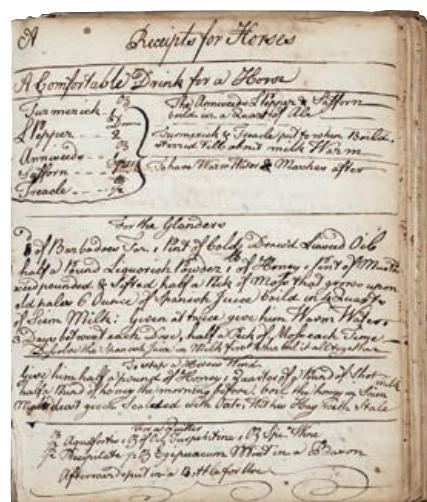 A
Receipts for Horses
A Comfortable Drink for a Horse
Turmerick
L Pepper 2
Anniseeds
Saffron
Treacle
The Anniseeds L Pepper & Saffron
boild in a Quart of Ale
Turmerick & Treacle put to when Boild
stirred till about milk Warm
To have Warm Water & Mashes after
For the Glanders
of Barbadoes Tar 1 Pint of Coldly Draw'd Linseed Oile
half a Pound Liquorish Powder 1 of Honey 1 pint of
pounded & Sifted half a Peck of Moss that grows upon
old pales 6 Ounce of Spanish Juice boild in 4 Quarts
of Scim Milk: Given at twice give him Warm Water
3 Days between each Dose, half a Peck of Moss each Time
the Spanish Juice in Milk first then put it all together
To stop a Horses Wind
Give him half a pound of Honey 1 quarter of a pound of Shot
half a pound of honey the morning before: boil the honey in Scim milk
Scalded with Oats, Wet his Hay with Stale
For a Quitter
Aquafortis 1 of Oil Turpentine 1 Spir. Wine
Precipitate in a Bason
Afterward put in a Bottle for Use